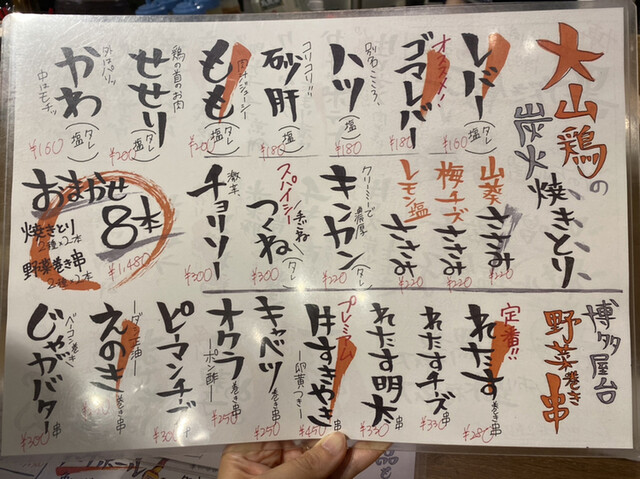 大山鶏の
炭火焼きとり
レバー(タレ)
¥160
オススメ!
ゴマレバー
¥180
別名こころ
ハツ(塩)
¥180
コリコリ!!
砂肝(塩)
¥180
肉汁ジューシー
もも(タレ 塩)
¥200
鶏の首のお肉
せせり(タレ 塩)
¥200
外はパリッ
中はモチッ
かわ(タレ 塩)
¥160
山葵ささみ
¥220
梅チーズささみ
¥220
レモン塩ささみ
¥220
クリーミーで濃厚
キンカン(タレ)
¥300
スパイシー手ごねつくね(タレ)
¥300
激辛
チョリソー
¥300
おまかせ
8本
焼きとり
野菜巻き串
¥1,480
博多屋台
野菜巻き串
定番!!
れたす巻き串
¥280
れたすチーズ串
¥330
れたす明太串
¥330
プレミアム
牛すきやき串
―卵黄つき―
¥450
キャベツ巻き串
¥250
オクラ巻き串
―ポン酢―
¥250
ピーマンチーズ串
¥300
えのき巻き串
ベーコン巻き
じゃがバター串
¥300